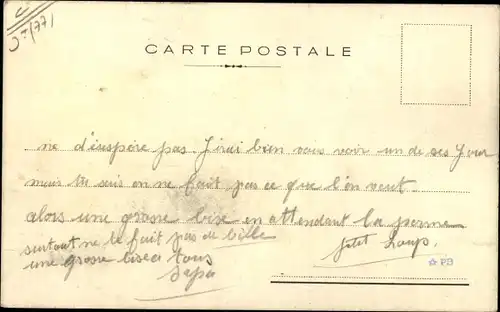 CARTE POSTALE
ne d'inspire pas. J'irai bien vous voir un de ses Jour
mais tu sais on ne fait pas ce que l'on veut.
alors une grosse bise en attendant la
surtout ne te fait pas de bille
une grosse bise a tous
Petit Loup.
☆ PB